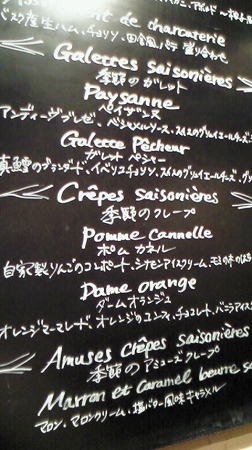 de charcuterie
バスク産生ハム、チョリソ、田舎風パテ 盛り合わせ
Galettes saisonières
季節のガレット
Paysanne
ペイザンヌ
アンディーヴブレゼ、ベシャメルソース、スイス産グリュイエールチーズ、
Galette Pêcheur
ガレット ペシャー
真鱈のブランダード、イベリコチョリソ、スイス産グリュイエールチーズ、
Crêpes saisonières
季節のクレープ
Pomme Cannelle
ポム カネル
自家製りんごのコンポート、シナモンアイスクリーム、
Dame orange
ダーム オランジュ
オレンジマーマレード、オレンジのコンフィ、チョコレート、バニラアイス
Amuses crêpes saisonières
季節のアミューズクレープ
Marron et Caramel beurre
マロン、マロンクリーム、塩バター風味キャラメル